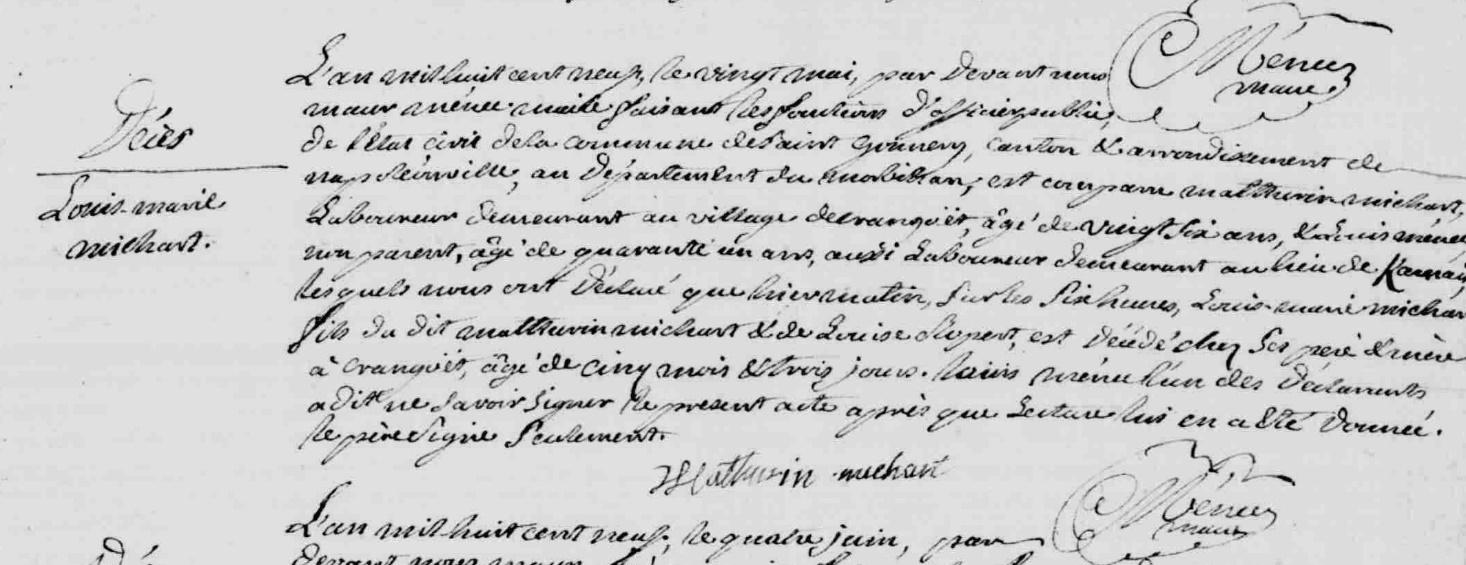 Décès
Louis-marie
michart.
L'an mil huit cent neuf, le vingt mai, par devant nous
maur ménec maire faisant les fonctions d'officier public,
de l'état civil de la commune de Saint Gonnery, canton & arrondissement de
napoléonville, au département du morbihan, est comparu matthurin michart,
Laboureur demeurant au village de cranguët, âgé de vingt six ans, & Louis ménec
non parent, âgé de quarante un ans, aussi Laboureur demeurant au lieu de
lesquels nous ont Déclaré que hier matin, sur les six heures, Louis-marie michart
fils du dit matthurin michart & de Louise, est Décédé chez ses père & mère
à cranguët, âgé de cinq mois & trois jours. Louis ménec l'un des Déclarants
a dit ne savoir signer le present acte après que Lecture lui en a été donnée.
le père signe seulement.
Mathurin michart
Ménec
maire
Ménec
maire
L'an mil huit cent neuf, le quatre juin, par
devant nous maur